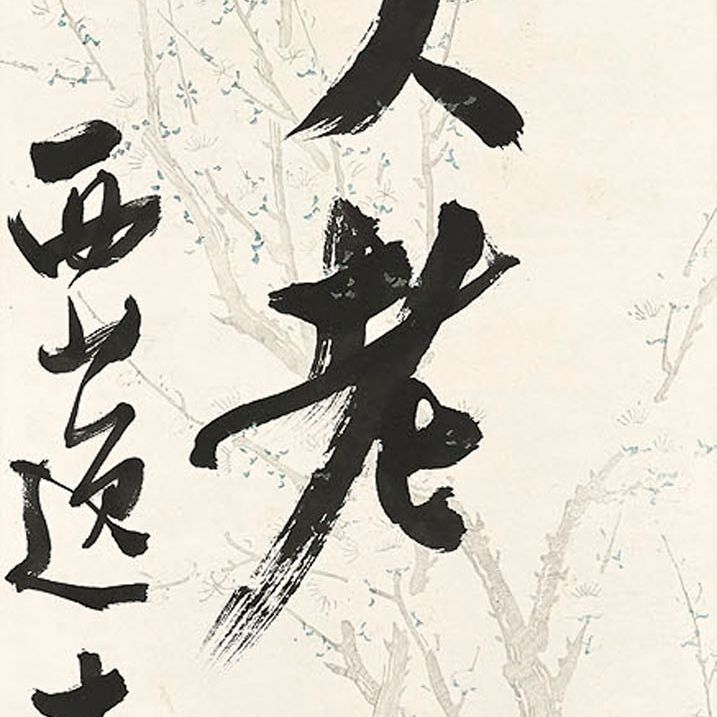 老
西山逸士